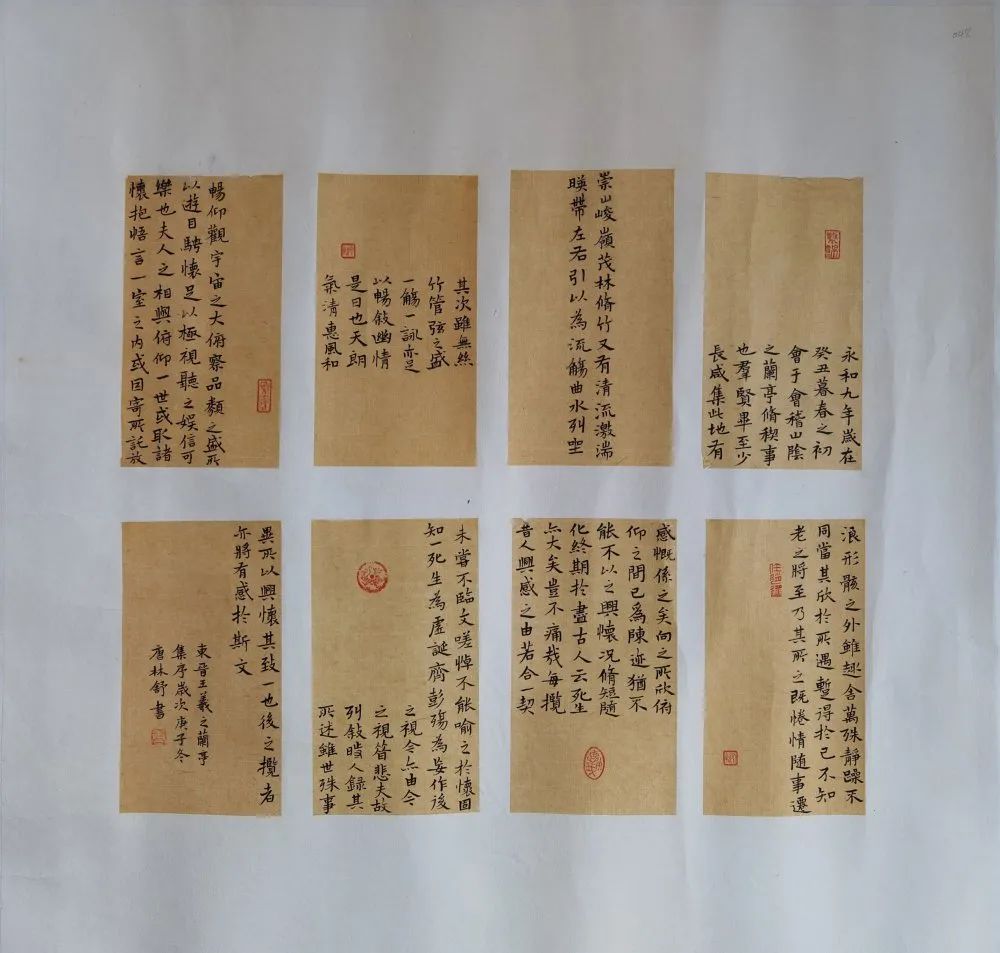 永和九年歲在
癸丑暮春之初
會于會稽山陰
之蘭亭脩稧事
也羣賢畢至少
長咸集此地有
崇山峻嶺茂林脩竹又有清流激湍
暎帶左右引以為流觴曲水列坐
其次雖無絲
竹管弦之盛
一觴一詠亦足
以暢敘幽情
是日也天朗
氣清惠風和
暢仰觀宇宙之大俯察品類之盛所
以遊目騁懷足以極視聽之娛信可
樂也夫人之相與俯仰一世或取諸
懷抱悟言一室之內或因寄所託放
浪形骸之外雖趣舍萬殊靜躁不
同當其欣於所遇蹔得於己不知
老之將至乃其所之既惓情隨事遷
感慨係之矣向之所欣俯
仰之間已為陳迹猶不
能不以之興懷況脩短隨
化終期於盡古人云死生
亦大矣豈不痛哉每攬
昔人興感之由若合一契
未嘗不臨文嗟悼不能喻之於懷固
知一死生為虛誕齊彭殤為妄作後
之視今亦由今
之視昔悲夫故
列敘時人錄其
所述雖世殊事
異所以興懷其致一也後之攬者
亦將有感於斯文
東晉王羲之蘭亭
集序歲次庚子冬
唐林舒書